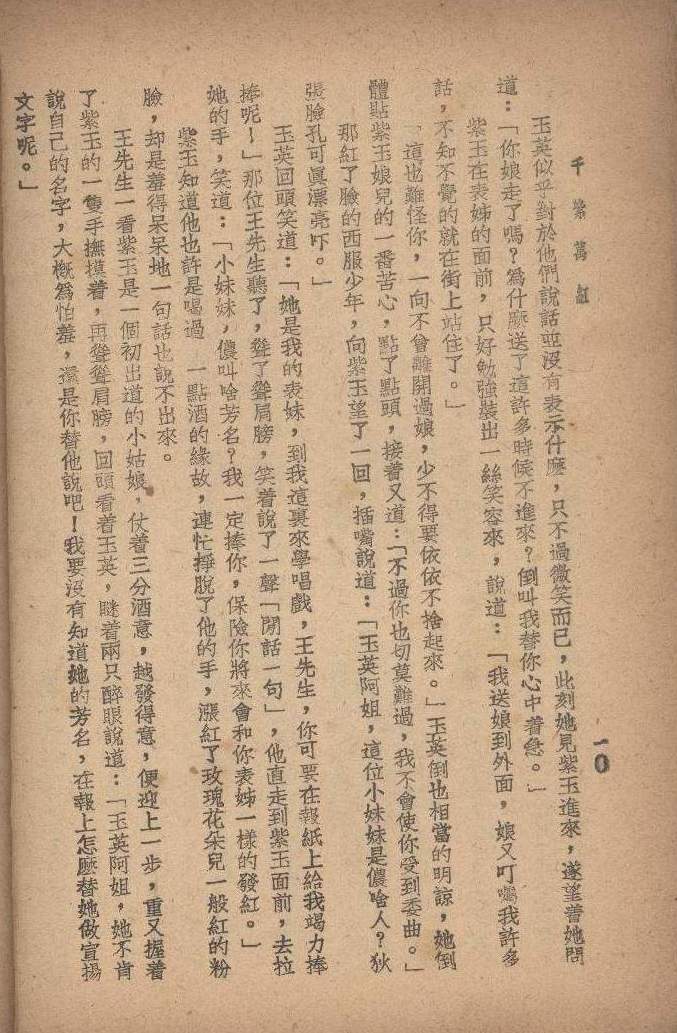 千紫萬紅
一〇
玉英似乎對於他們說話並沒有表示什麼，只不過微笑而已，此刻她見紫玉進來，遂望着她問
道：「你娘走了嗎？爲什麼送了這許多時候不進來？倒叫我替你心中着急。」
紫玉在表姊的面前，只好勉強裝出一絲笑容來，說道：「我送娘到外面，娘又叮囑我許多
話，不知不覺的就在街上站住了。」
「這也難怪你，一向不曾離開過娘，少不得要依依不捨起來。」玉英倒也相當的明諒，她倒
體貼紫玉娘兒的一番苦心，點了點頭，接着又道：「不過你也切莫難過，我不會使你受到委曲。」
那紅了臉的西服少年，向紫玉望了一回，插嘴說道：「玉英阿姐，這位小妹妹是儂啥人？狄
張臉孔可眞漂亮吓。」
玉英回頭笑道：「她是我的表妹，到我這裏來學唱戲，王先生，你可要在報紙上給我竭力捧
捧呢！」那位王先生聽了，聳了聳肩膀，笑着說了一聲「閒話一句」，他直走到紫玉面前，去拉
她的手，笑道：「小妹妹，儂叫啥芳名？我一定捧你，保險你將來會和你表姊一樣的發紅。」
紫玉知道他也許是喝過一點酒的緣故，連忙掙脫了他的手，漲紅了玫瑰花朵兒一般紅的粉
臉，却是羞得呆呆地一句話也說不出來。
王先生一看紫玉是一個初出道的小姑娘，仗着三分酒意，越發得意，便迎上一步，重又握着
了紫玉的一雙手撫摸着，再聳聳肩膀，回頭看着玉英，瞇着兩只醉眼說道：「玉英阿姐，她不肯
說自己的名字，大槪爲怕羞，還是你替他說吧！我要沒有知道她的芳名，在報上怎麼替她做宣揚
文字呢。」